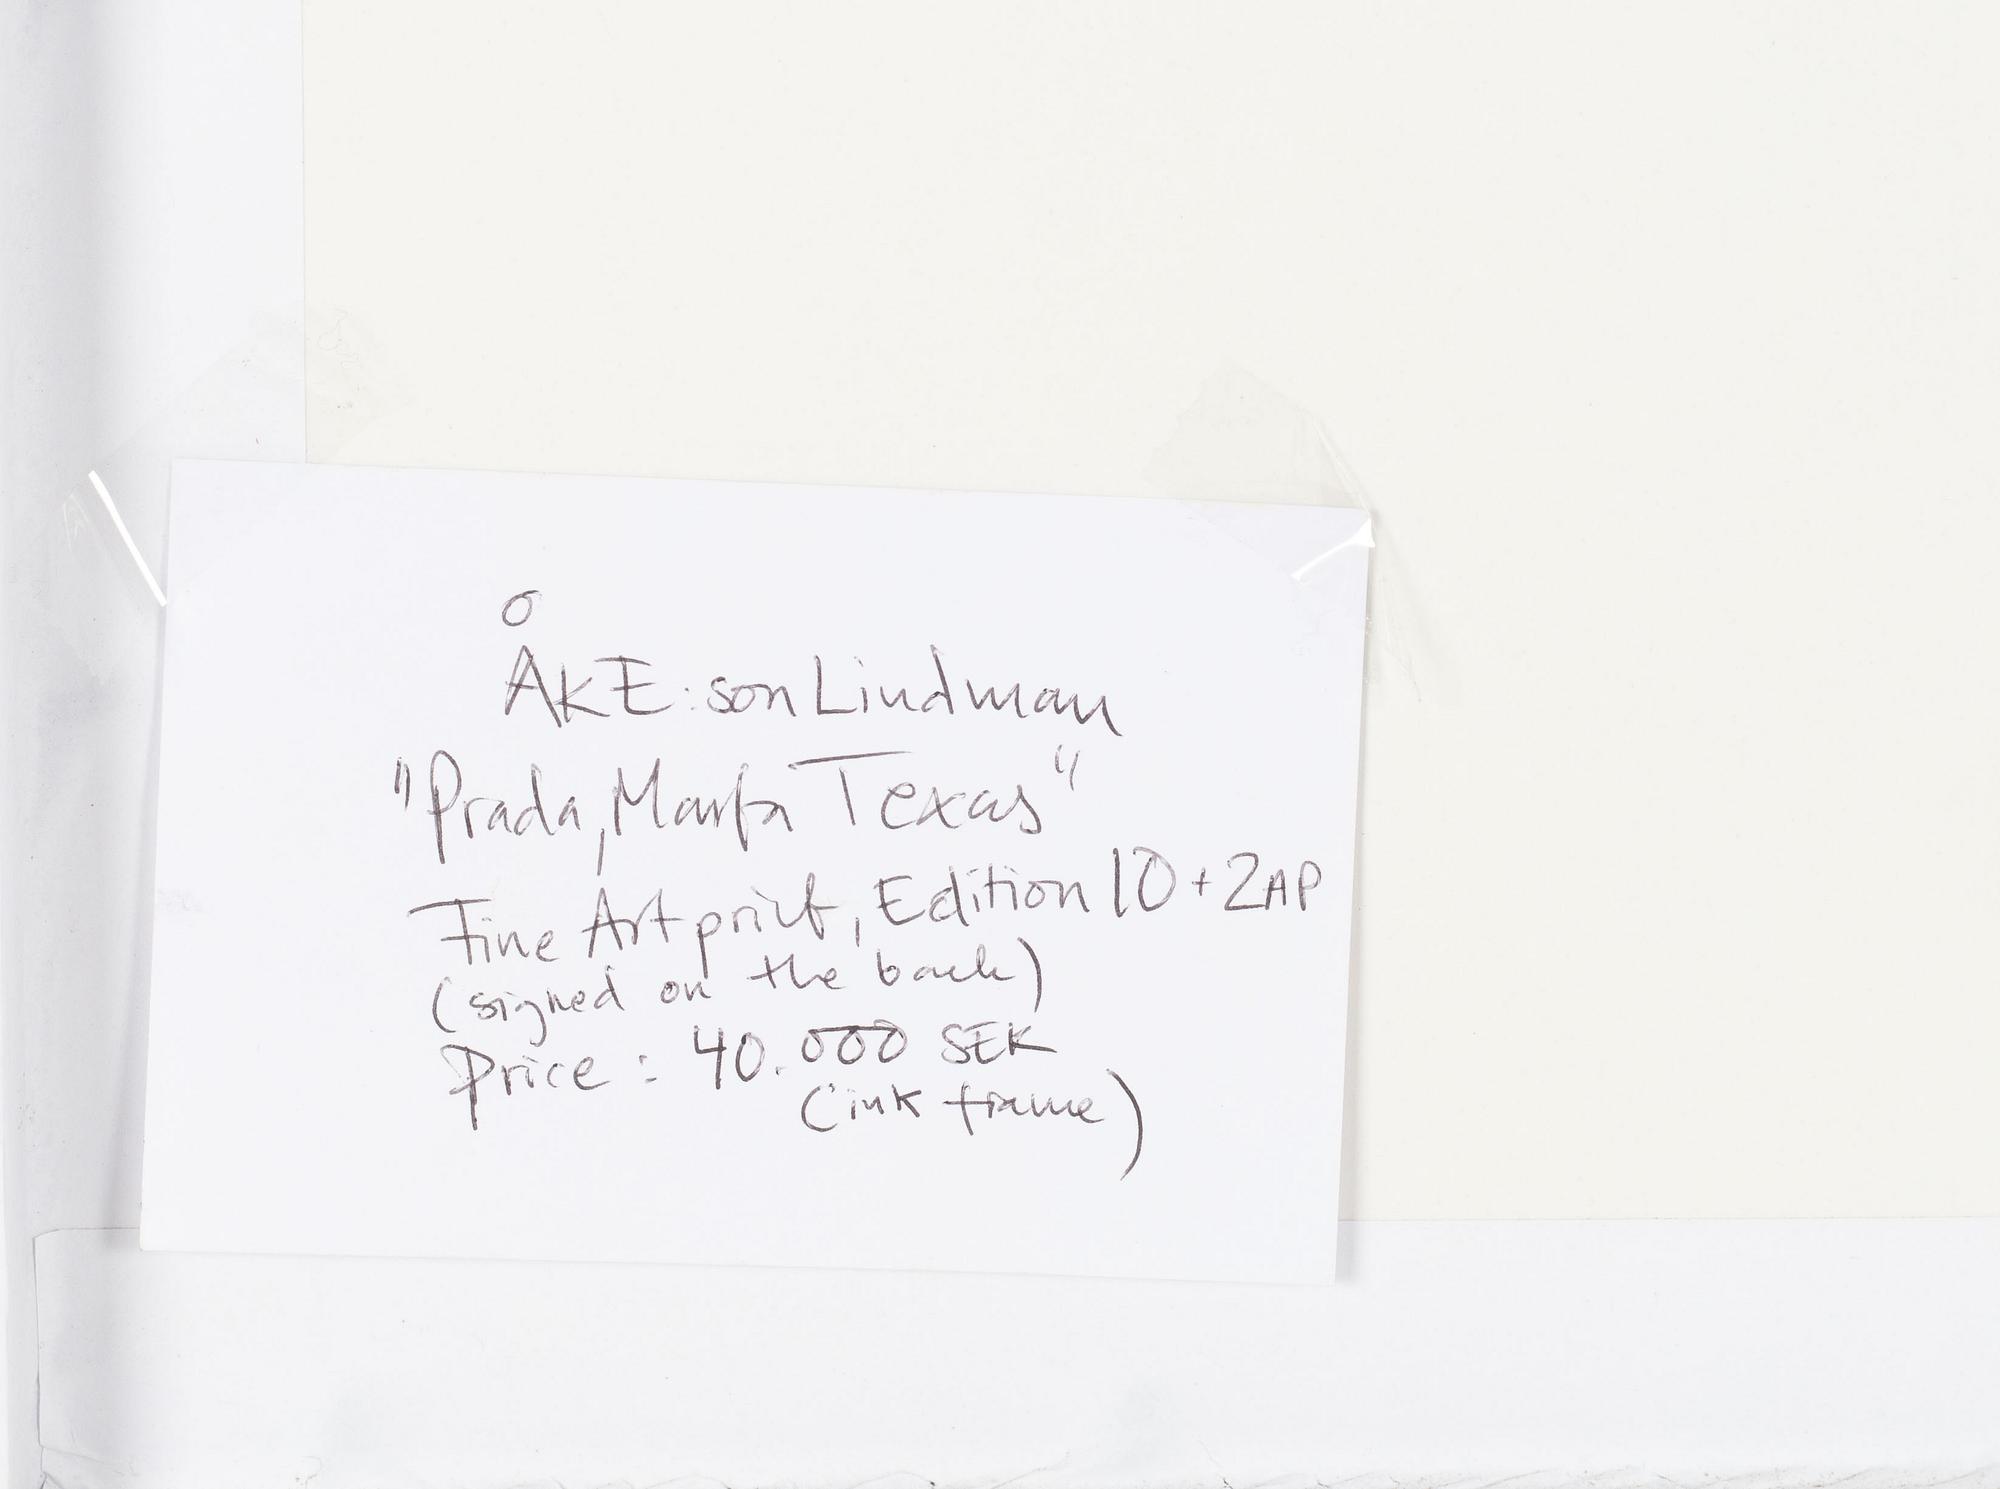 ÅKE:son Lindman
"Prada, Marfa Texas"
Fine Art print, Edition 10 + 2AP
(signed on the back)
Price : 40.000 SEK
(ink frame)